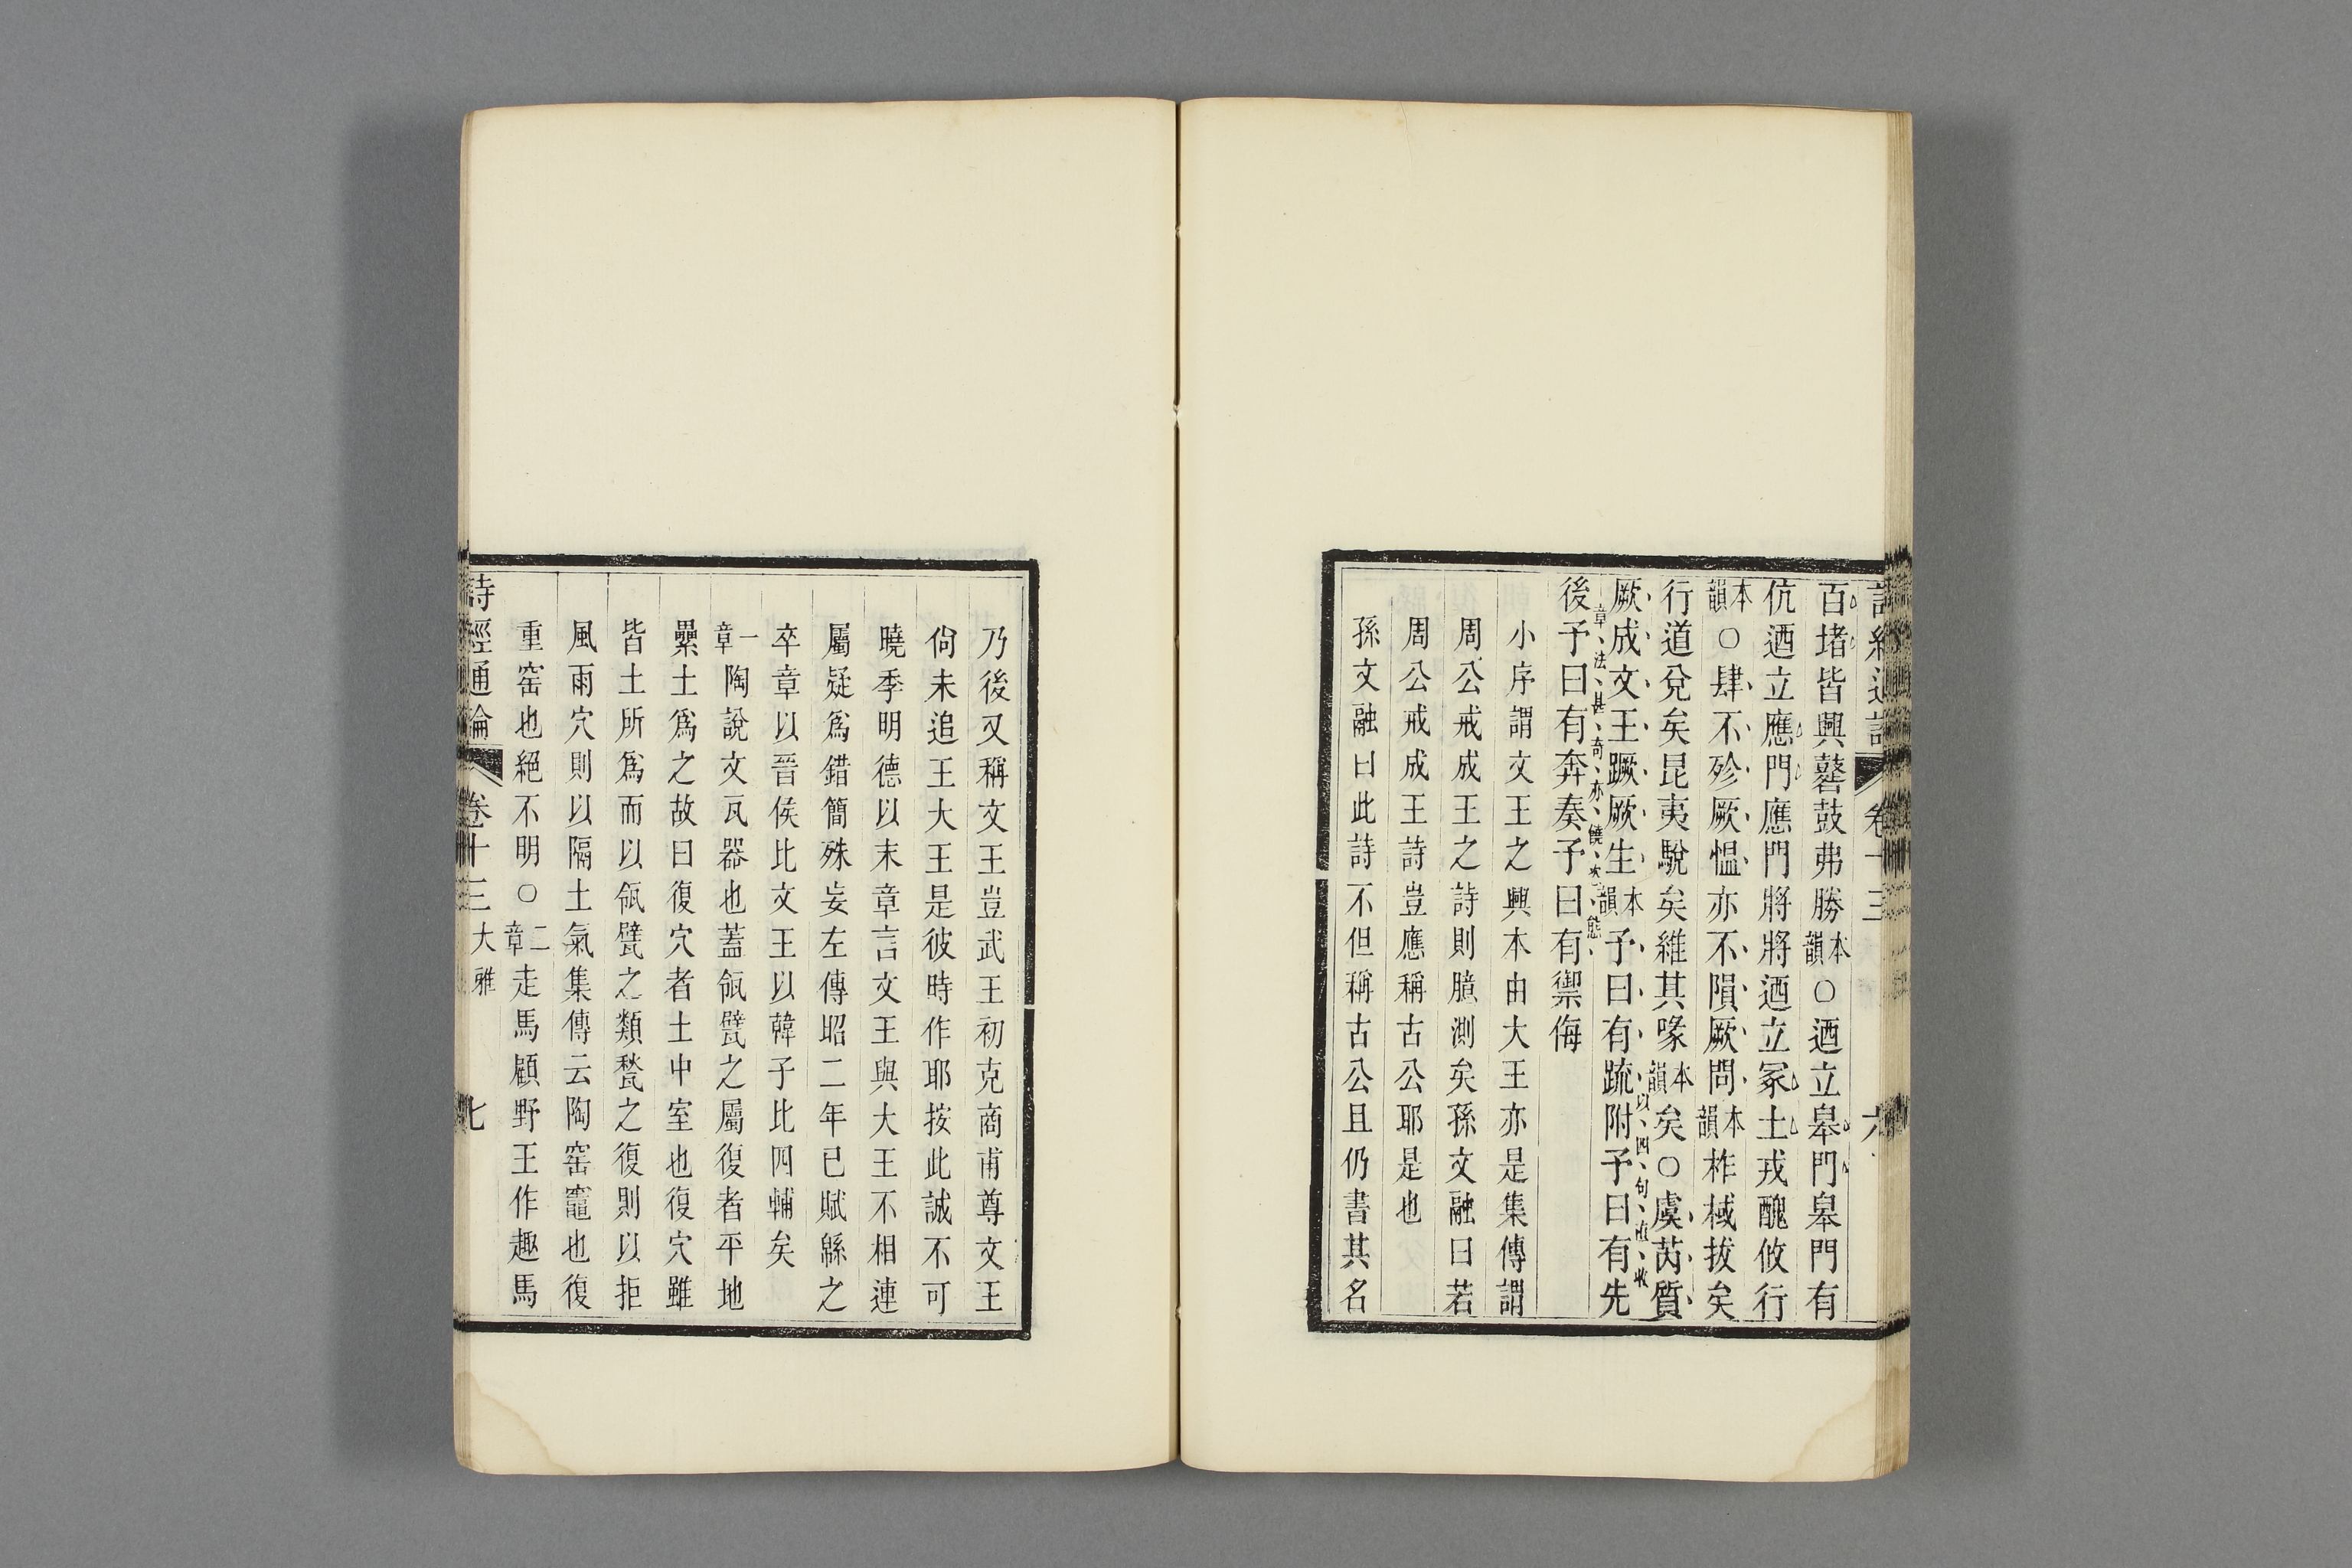 百堵皆興鼛鼓弗勝本韻○迺立皋門皋門有
伉迺立應門應門將將迺立冢土戎醜攸行
本韻○肆不殄厥慍亦不隕厥問本韻柞棫拔矣
行道兌矣昆夷駾矣維其喙本韻矣○虞芮質
厥成文王蹶厥生本韻予曰有疏附予曰有先
以四句直收
後予曰有奔奏予曰有禦侮
章法甚奇亦饒姿態
小序謂文王之興本由大王亦是集傳謂
周公戒成王之詩則臆測矣孫文融曰若
周公戒成王詩豈應稱古公耶是也
孫文融曰此詩不但稱古公且仍書其名
乃後又稱文王豈武王初克商甫尊文王
尙未追王大王是彼時作耶按此誠不可
曉季明德以末章言文王與大王不相連
屬疑爲錯簡殊妄左傳昭二年已賦緜之
卒章以晉侯比文王以韓子比四輔矣
一章陶說文瓦器也蓋瓴甓之屬復者平地
纍土爲之故曰復穴者土中室也復穴雖
皆土所爲而以瓴甓之類甃之復則以拒
風雨穴則以隔土氣集傳云陶窑竈也復
重窑也絕不明○二章走馬顧野王作趣馬
詩經通論 卷十三 大雅 七